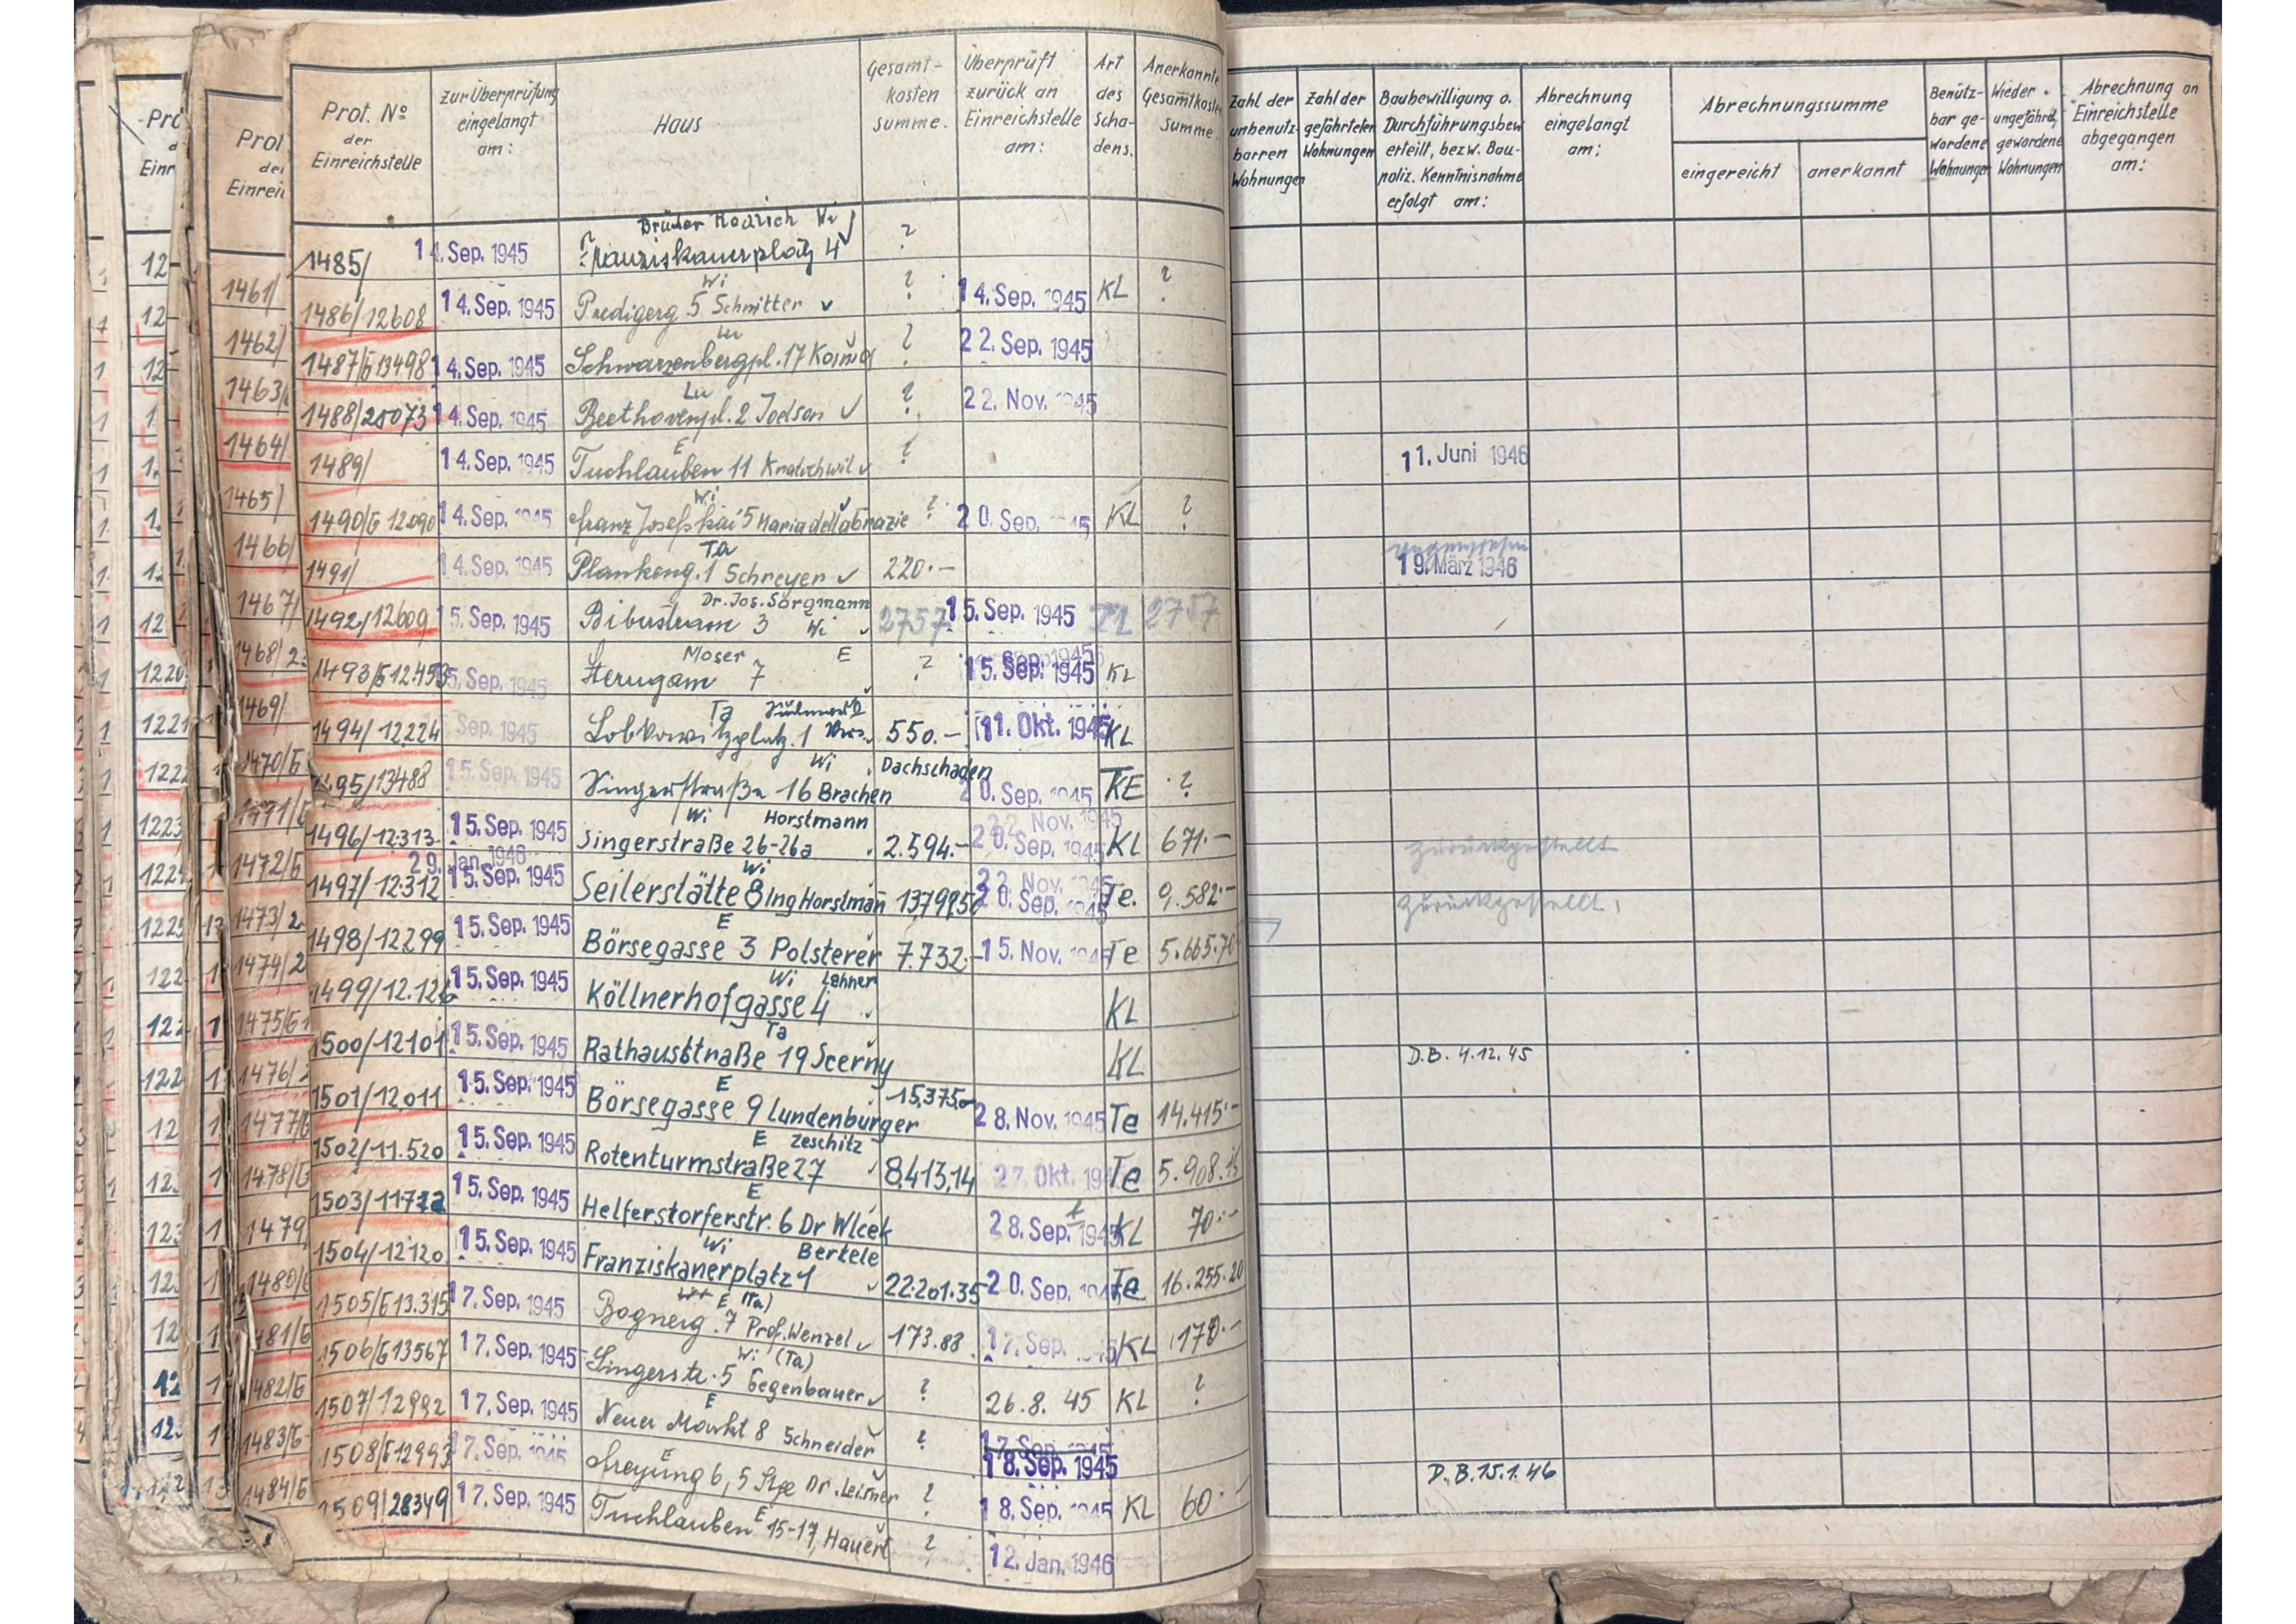 Prot. No der Einreichstelle | Zur Überprüfung eingelangt am: | Haus | Gesamt-kosten summe. | Überprüft zurück an Einreichstelle am: | Art des Scha-dens. | Anerkannte Gesamtkosten Summe. | Zahl der unbenutz-barren Wohnungen | Zahl der gefährteten Wohnungen | Baubewilligung o. Durchführungsbew. erteilt, bezw. Bau-poliz. Kenntnisnahme erfolgt am: | Abrechnung eingelangt am: | Abrechnungssumme eingereicht | anerkannt | Benütz-bar ge-wordene Wohnungen | Wieder ungefährd. gewordene Wohnungen | Abrechnung an Einreichstelle abgegangen am:
1485/ | 14. Sep. 1945 | Brüder Wi Franziskanerplatz 4 | ?
1486/12608 | 14. Sep. 1945 | Wi Predigerg 5 Schnitter | ? | 14. Sep. 1945 | KL | ?
1487/G13498 | 14. Sep. 1945 | Lu Schwarzenbergpl. 17 | ? | 22. Sep. 1945
1488/25073 | 14. Sep. 1945 | Lu Beethovenpl. 2 | ? | 22. Nov. 1945
1489/ | 14. Sep. 1945 | E Tuchlauben 11 | ? | 11. Juni 1946
1490/G 12090 | 14. Sep. 1945 | Wi Franz Josefs Kai 5 Maria | ? | 20. Sep. 1945 | KL | ?
1491/ | 14. Sep. 1945 | Ta Plankeng. 1 Schreyer | 220.- | 19. März 1946
1492/12609 | 15. Sep. 1945 | Dr. Jos. Sorgmann Biberstrasse 3 Wi | 2757 | 15. Sep. 1945 | 2757
1493/G12.453 | 15. Sep. 1945 | Moser E 7 | ? | 15. Sep. 1945 | KL
1494/12224 | Sep. 1945 | Ta Lobkowitzplatz. 1 | 550.- | 11. Okt. 1945 | KL
1495/13488 | 15. Sep. 1945 | Wi Singerstraße 16 Brachen | Dachschaden | 20. Sep. 1945 | KE | ?
1496/12.313 | 15. Sep. 1945 | Wi Horstmann Singerstraße 26-26a | 2.594.- | 22. Nov. 1945 20. Sep. 1945 | KL | 671.- | zurückgestellt
1497/12.312 | 29. Jan. 1946 15. Sep. 1945 | Wi Seilerstätte 8 Ing Horstman̄ | 22. Nov. 1945 20. Sep. 1945 | Te. | 9.582.- | zurückgestellt
1498/12299 | 15. Sep. 1945 | E Börsegasse 3 Polsterer | 7.732.- | 15. Nov. 1945 | Te | 5.665.70
1499/12.126 | 15. Sep. 1945 | Wi Lehner Köllnerhofgasse 4 | KL
1500/12101 | 15. Sep. 1945 | Ta Rathausstraße 19 Scerny | KL | D.B. 4.12.45
1501/12.011 | 15. Sep. 1945 | E Börsegasse 9 Lundenburger | 15.375.- | 28. Nov. 1945 | Te | 14.415.-
1502/11.520 | 15. Sep. 1945 | E Zeschitz Rotenturmstraße 27 | 8.413,14 | 27. Okt. 1945 | Te | 5.908.
1503/11772 | 15. Sep. 1945 | E Helferstorferstr. 6 Dr Wlcek | 28. Sep. 1945 | KL | 70.-
1504/12120 | 15. Sep. 1945 | Wi Bertele Franziskanerplatz 1 | 22.201.35 | 20. Sep. 1945 | Te | 16.255.20
1505/G13.315 | 17. Sep. 1945 | E (Ta) Bognerg. 7 Prof. Wenzel | 173.88 | 17. Sep. 1945 | KL | 170.-
1506/G13567 | 17. Sep. 1945 | Wi (Ta) Singerstr. 5 Gegenbauer | ? | 26.8. 45 | KL | ?
1507/12992 | 17. Sep. 1945 | E Neuer Markt 8 Schneider | ? | 17. Sep. 1945 18. Sep. 1945
1508/G12993 | 17. Sep. 1945 | E Freyung 6, 5 Stge Dr. Leisner | ? | 18. Sep. 1945 | KL | 60.- | D.B. 15.1.46
1509/28349 | 17. Sep. 1945 | E Tuchlauben 15-17, Hauerl | ? | 12. Jan. 1946